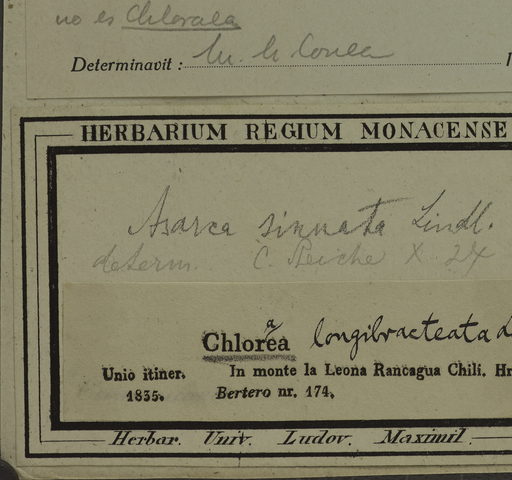 no es Chloraea
Determinavit : M. N. Correa
HERBARIUM REGIUM MONACENSE
Asarca sinuata Lindl.
determ. C. Reiche X. 24
a
Chlorea longibracteata
Unio itiner. In monte la Leona Rancagua Chili.
1835. Bertero nr. 174.
Herbar. Univ. Ludov. Maximil.